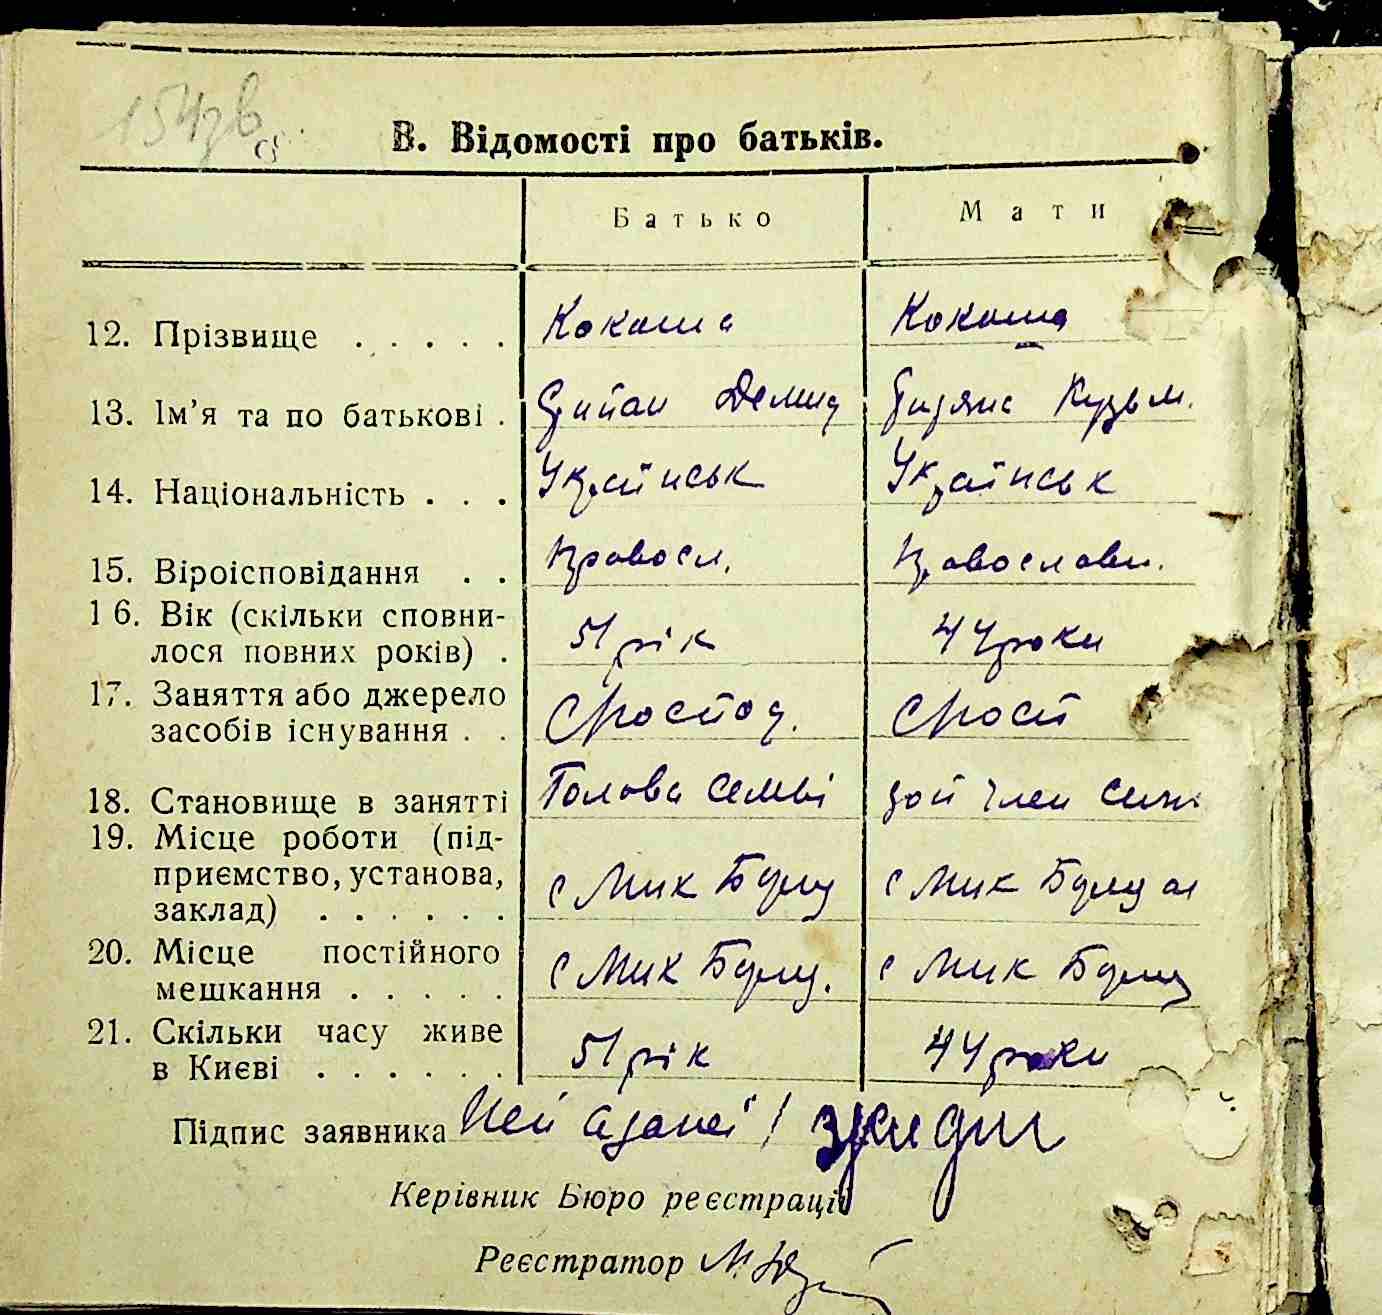 154зв
В. Відомості про батьків.
Батько Мати
12. Прізвище . . . . . Кокоша Кокоша
13. Ім'я та по батькові . Степан Демид Кузьм.
14. Національність . . . Українськ Українськ
15. Віроісповідання . . Правосл. Православн.
16. Вік (скільки сповни-
лося повних років) . 51 рік 44 роки
17. Заняття або джерело
засобів існування . . с господ. с госп
18. Становище в занятті Голова семьі член
19. Місце роботи (під-
приємство, установа,
заклад) . . . . . . с Мик Борщ с Мик Борщ
20. Місце постійного
мешкання . . . . . с Мик Борщ. с Мик Борщ
21. Скільки часу живе
в Києві . . . . . . 51 рік 44 роки
Підпис заявника
Керівник Бюро реєстрації
Реєстратор